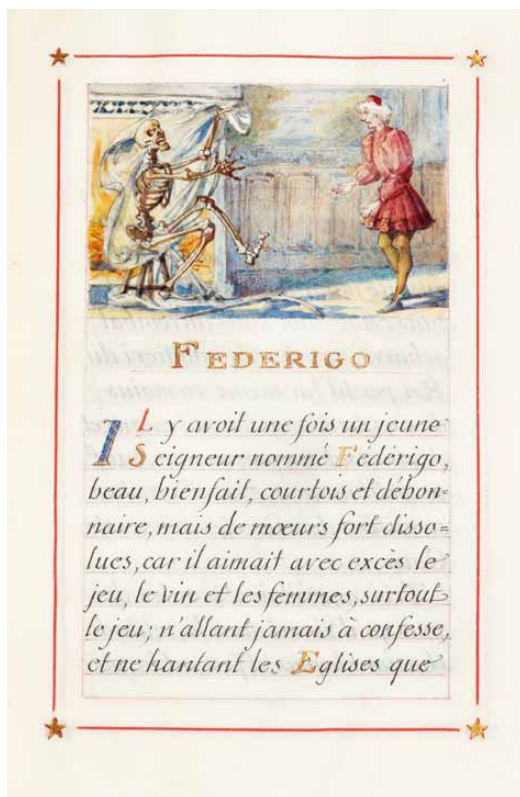 FEDERIGO
IL y avoit une fois un jeune
Seigneur nommé Fédérigo,
beau, bienfait, courtois et débon=
naire, mais de mœurs fort disso=
lues, car il aimait avec excès le
jeu, le vin et les femmes, surtout
le jeu; n'allant jamais à confesse,
et ne hantant les Eglises que